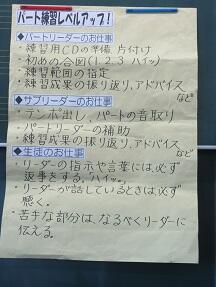 パート練習レベルアップ!
◆パートリーダーのお仕事
・練習用CDの準備、片付け
・初めの合図(1.2.3 ハイッ)
・練習範囲の指定
・練習成果の振り返り、アドバイス
など
◆サブリーダーのお仕事
・テンポ出し、パートの音取り
・パートリーダーの補助
・練習成果の振り返り、アドバイス
など
◆生徒のお仕事
・リーダーの指示や言葉には必ず
返事をする。ハイッ。
・リーダーが話しているときは必ず
聴く。
・苦手な部分は、なるべくリーダーに
伝える。